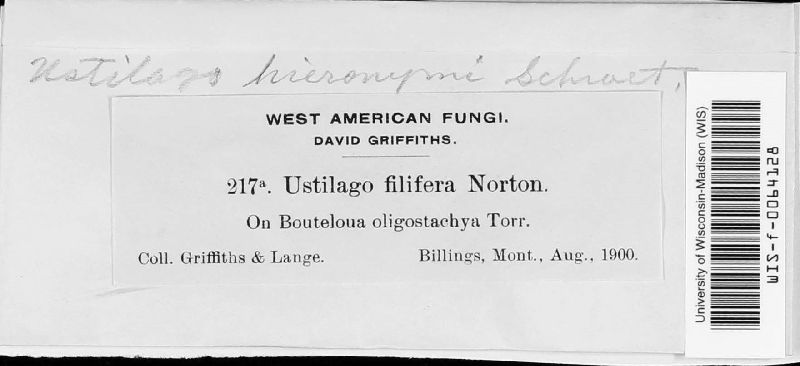 Ustilago hieronymi Schroet.
WEST AMERICAN FUNGI.
DAVID GRIFFITHS.
217ª. Ustilago filifera Norton.
On Bouteloua oligostachya Torr.
Coll. Griffiths & Lange. Billings, Mont., Aug., 1900.
University of Wisconsin-Madison (WIS)
WIS-f-0064128